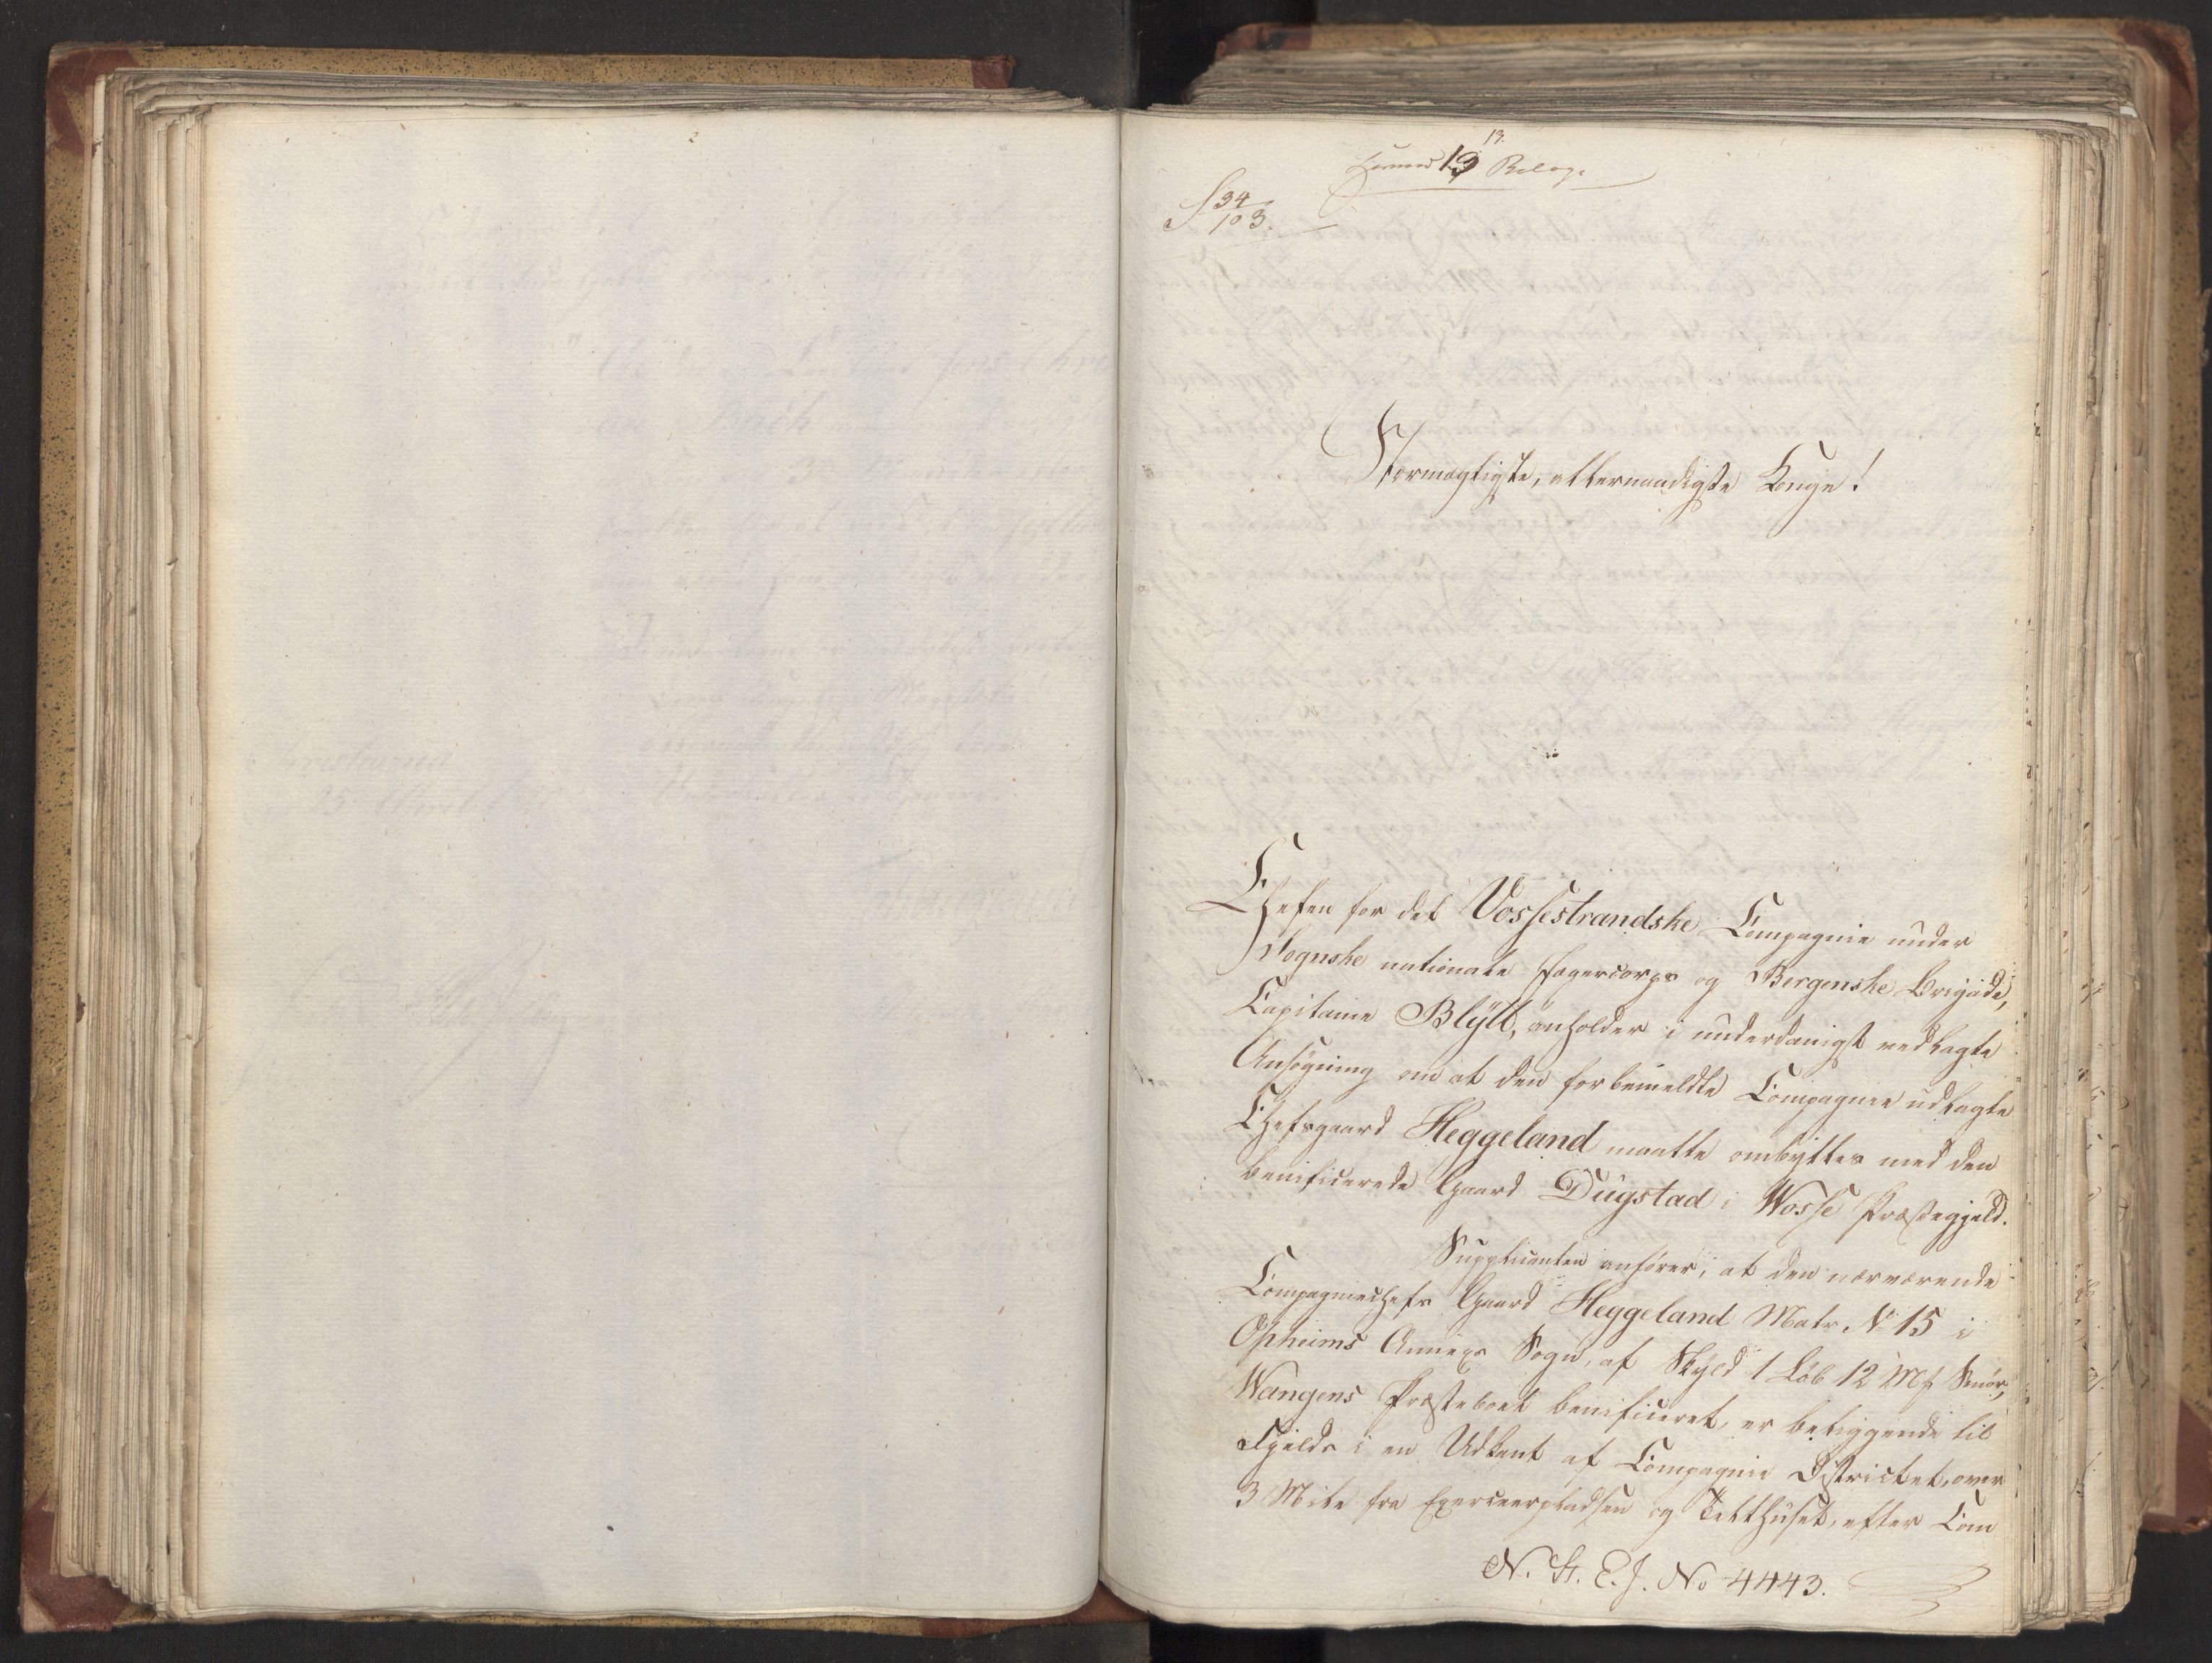 13.
13 Bilage
S 34
103.
Stormægtigste, allernaadigste Konge!
Chefen for det Vossestrandske Compagnie under
Sognske nationale Jægercorps og Bergenske Brigade,
Capitaine Blÿtt, anholder i underdanigst vedlagte
Ansøgning om at den forbemeldte Compagnie udlagte
Chefsgaard Heggeland maatte ombyttes med den
benificerede Gaard Dügstad i Wosse Præstegjeld.
Supplicanten anfører, at den nærværende
Compagniechefs Gaard Heggeland Matr. No 15 i
Opheims Annexs Sogn, af Skyld 1 Løb 12 Mk Smør,
Wangens Præsteboel benificeret, er beliggende til
Fjelds i en Udkant af Compagnie Districtet, over
3 Mile fra Exerceerpladsen og Telthuset, efter Com
N. St. E. J. No 4443.